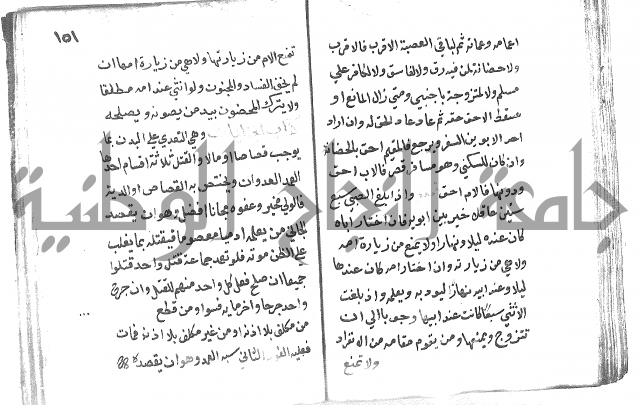 اعمامه وعماته ثم لباقي العصبة الاقرب فالاقرب
ولا حضانة لمن فيه رق ولا لفاسق ولا لكافر علي
مسلم ولا لمتزوجة باجنبي ومتى زال المانع او
سقط الاحق حقه ثم عاد عاد الحق له وان اراد
احد الابوين السفر ويرجع فالمقيم احق بالحضانة
وان كان للسكني وهو مسافة قصر فالاب احق
ودونها فالام احق واذا بلغ الصبي سبع
سنين عاقلا خير بين ابويه فان اختار اباه
كان عنده ليلا ونهارا ولا يمنع من زيارة امه
ولا هي من زيارته وان اختار امه كان عندها
ليلا وعند ابيه نهارا ليؤدبه ويعلمه واذا بلغت
الانثي سبعا كانت عند ابيها وجوبا الي ان
تتزوج ويمنعها ومن يقوم مقامه من الانفراد
ولا تمنع
١٥١
تمنع الام من زيارتها ولا هي من زيارة امها ان
لم يخف الفساد والمجنون ولو انثي عند امه مطلقا
ولا يترك المحضون بيد من لا يصونه ويصلحه
وهي التعدي علي البدن بما
يوجب قصاصا او مالا والقتل ثلاثة اقسام احدها
العمد العدوان ويختص به القصاص او الدية
فالولي مخير وعفوه مجانا افضل وهو ان يقصد
الجاني من يعلمه ادميا معصوما فيقتله بما يغلب
علي الظن موته به فلو تعمد جماعة قتل واحد قتلوا
جميعا ان صلح فعل كل واحد منهم للقتل وان جرح
واحد جرحا واخر ماية فسواء ومن قطع
من مكلف بلا اذنه او من غير مكلف بلا اذن فمات
فعليه الثاني شبه العمد وهو ان يقصده
جامعة النجاح الوطنية